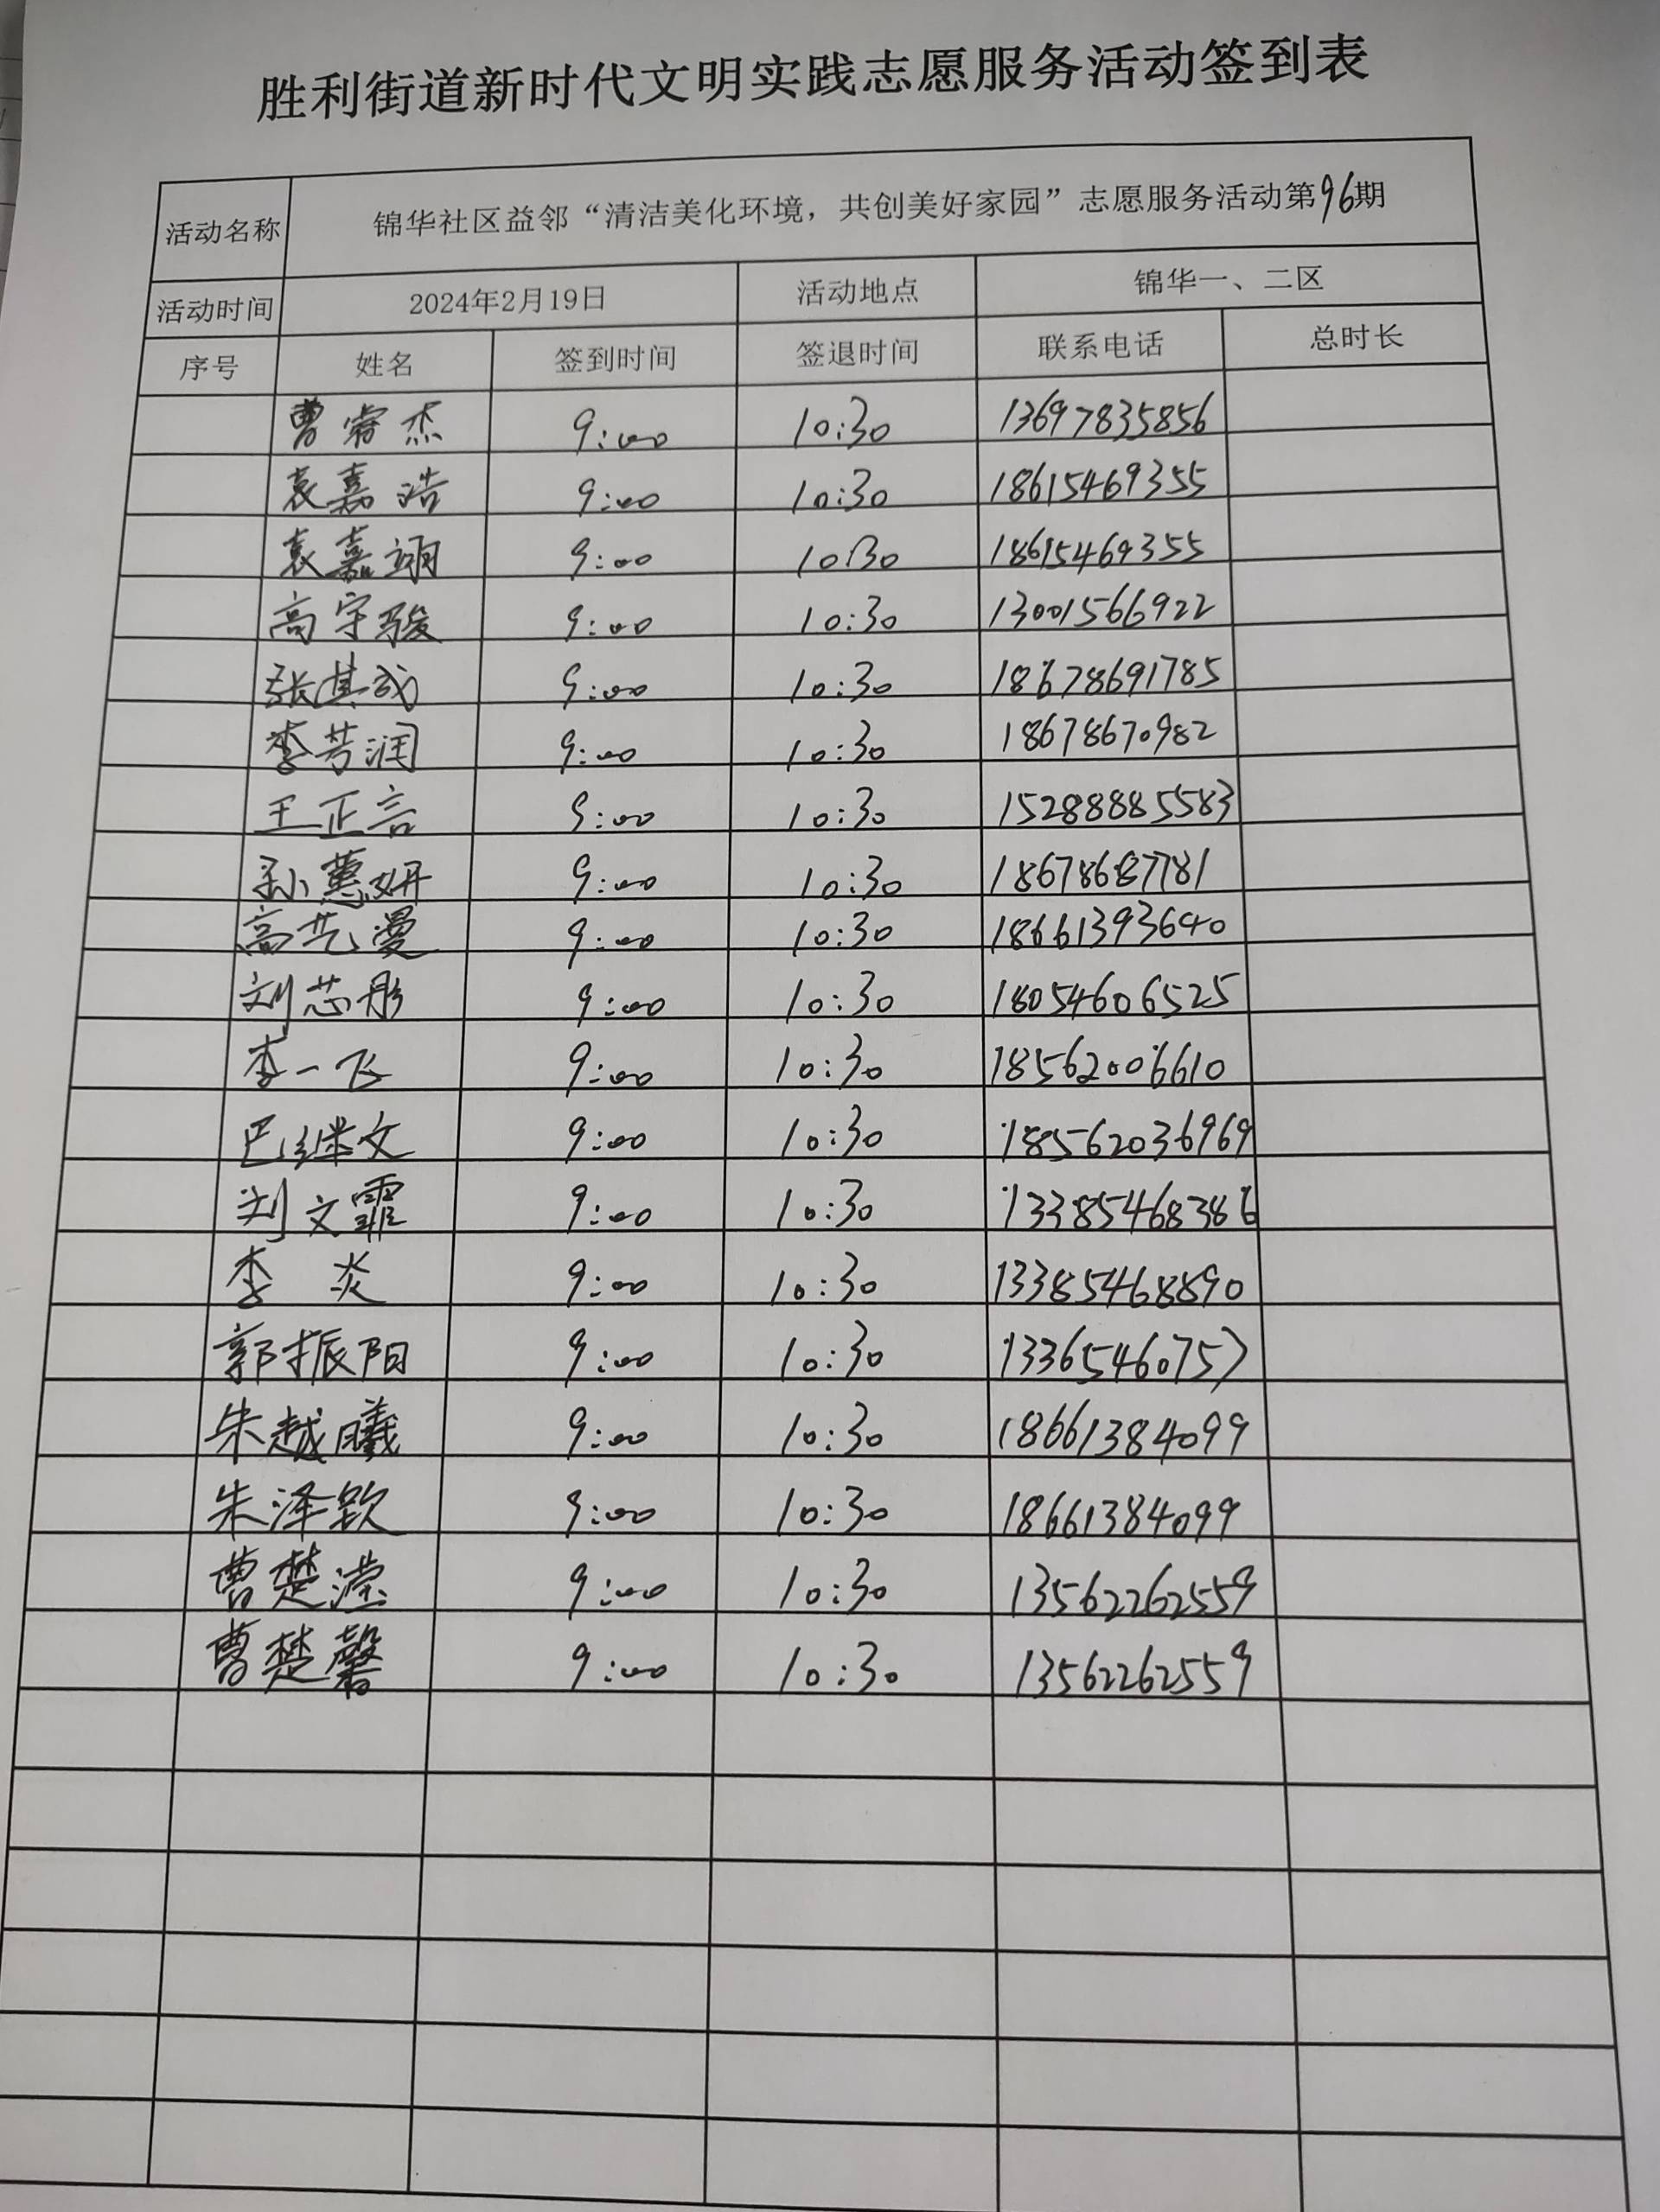 胜利街道新时代文明实践志愿服务活动签到表
活动名称 锦华社区益邻“清洁美化环境，共创美好家园”志愿服务活动第96期
活动时间 2024年2月19日 活动地点 锦华一、二区
序号 姓名 签到时间 签退时间 联系电话 总时长
曹常杰 9:00 10:30 13697835856
袁嘉浩 9:00 10:30 18615469355
袁嘉翊 9:00 10:30 18615469355
高宇骏 9:00 10:30 13001566922
张其成 9:00 10:30 18678691785
李芳润 9:00 10:30 18678670982
王正言 9:00 10:30 15288885583
孙蕙妍 9:00 10:30 18678687781
高艺漫 9:00 10:30 18661393640
刘芯彤 9:00 10:30 18054606525
李一飞 9:00 10:30 18562006610
巴继文 9:00 10:30 18562036969
刘文霏 9:00 10:30 13385468386
李炎 9:00 10:30 13385468890
郭振阳 9:00 10:30 13365460757
朱越曦 9:00 10:30 18661384099
朱泽钦 9:00 10:30 18661384099
曹楚滢 9:00 10:30 13562262559
曹楚馨 9:00 10:30 13562262559